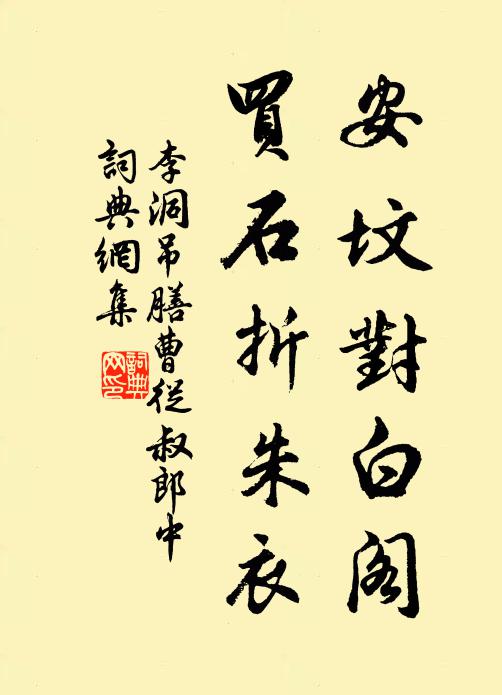 安坟對白阁
買石折朱衣
李洞吊膳曹從叔郎中
詞典網集
詞典网印